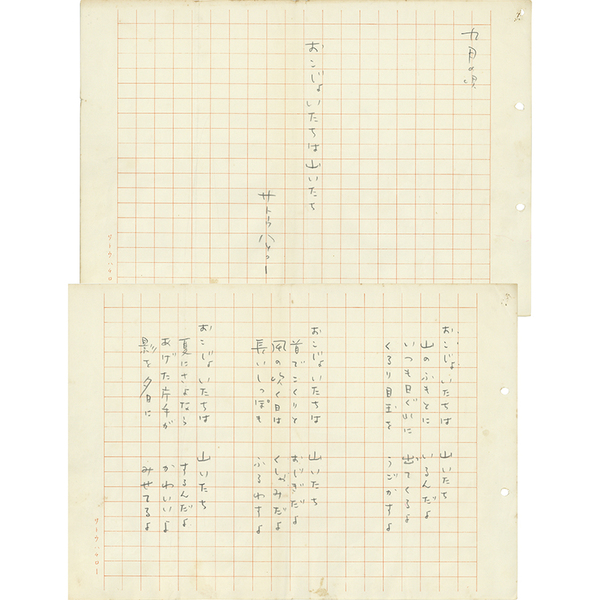 九月の唄
おこじょいたちは山いたち
サトウハチロー
サトウハチロー
おこじょいたちは 山いたち
山のふもとに いるんだよ
いつも日ぐれに 出てくるよ
くるり目玉を うごかすよ
おこじょいたちは 山いたち
首でこくりと おじぎだよ
風の吹く日は くしゃみだよ
長いしっぽも ふるわすよ
おこじょいたちは 山いたち
夏にさよなら するんだよ
あげた片手が かわいいよ
影を夕日に みせてるよ
サトウハチロー